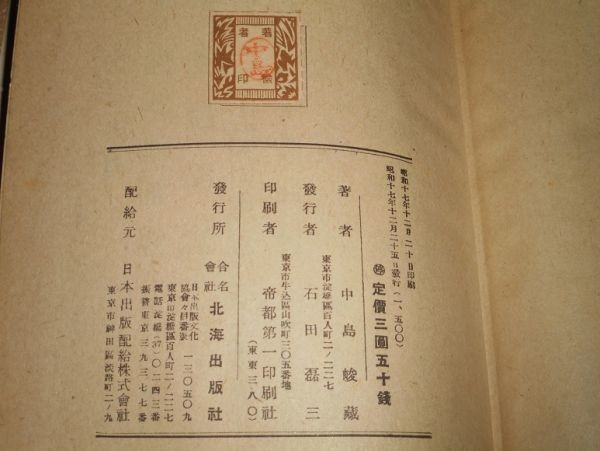 著者
檢印
中島
昭和十七年十二月二十日印刷
昭和十七年十二月二十五日發行(一、五〇〇)
定價三圓五十錢
著者 中島峻藏
東京市淀橋區百人町二ノ二二七
發行者 石田磊三
東京市牛込區山吹町三〇五番地
印刷者 帝都第一印刷社
(東東三八〇)
發行所 合名會社 北海出版社
日本出版文化協會々員番號 一三〇五〇九
東京市淀橋區百人町二ノ二二七
電話淀橋(37)〇二四三番
振替東京三九三七七番
配給元 日本出版配給株式會社
東京市神田區淡路町二ノ九